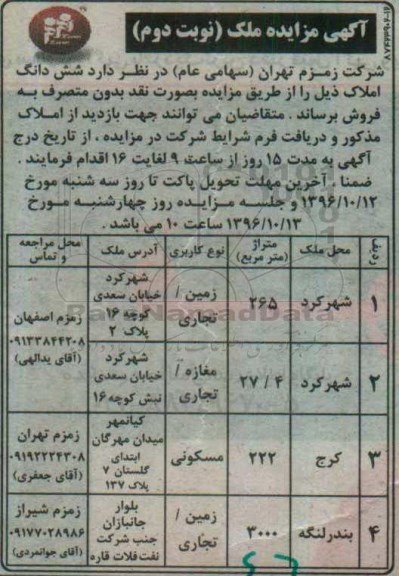 آگهی مزایده ملک (نوبت دوم)
شرکت زمزم تهران (سهامی عام) در نظر دارد شش دانگ
املاک ذیل را از طریق مزایده بصورت نقد بدون متصرف به
فروش برساند . متقاضیان می توانند جهت بازدید از املاک
مذکور و دریافت فرم شرایط شرکت در مزایده ، از تاریخ درج
آگهی به مدت ۱۵ روز از ساعت ۹ لغایت ۱۶ اقدام فرمایند .
ضمنا آخرین مهلت تحویل پاکت تا روز سه شنبه مورخ
۱۳۹۶/۱۰/۱۲ و جلسه مزایده روز چهارشنبه مورخ
۱۳۹۶/۱۰/۱۳ ساعت ۱۰ می باشد .
ردیف
محل ملک
متراژ
(متر مربع)
نوع کاربری
آدرس ملک
محل مراجعه
و تماس
۱
شهرکرد
۲۶۵
زمین /
تجاری
شهرکرد
خیابان سعدی
کوچه ۱۶
پلاک ۲
زمزم اصفهان
۰۹۱۳۳۸۴۴۲۰۸
(آقای یدالهی)
۲
شهرکرد
۲۷ / ۴
مغازه /
تجاری
شهرکرد
خیابان سعدی
نبش کوچه ۱۶
۳
کرج
۲۲۲
مسکونی
کیانمهر
میدان مهرگان
ابتدای
گلستان ۷
پلاک ۱۳۷
زمزم تهران
۰۹۱۹۲۲۲۴۳۰۸
(آقای جعفری)
۴
بندرلنگه
۳۰۰۰
زمین /
تجاری
بلوار
جانبازان
جنب شرکت
نفت فلات قاره
زمزم شیراز
۰۹۱۷۷۰۲۸۹۸۶
(آقای جوانمردی)
ParsNamadData